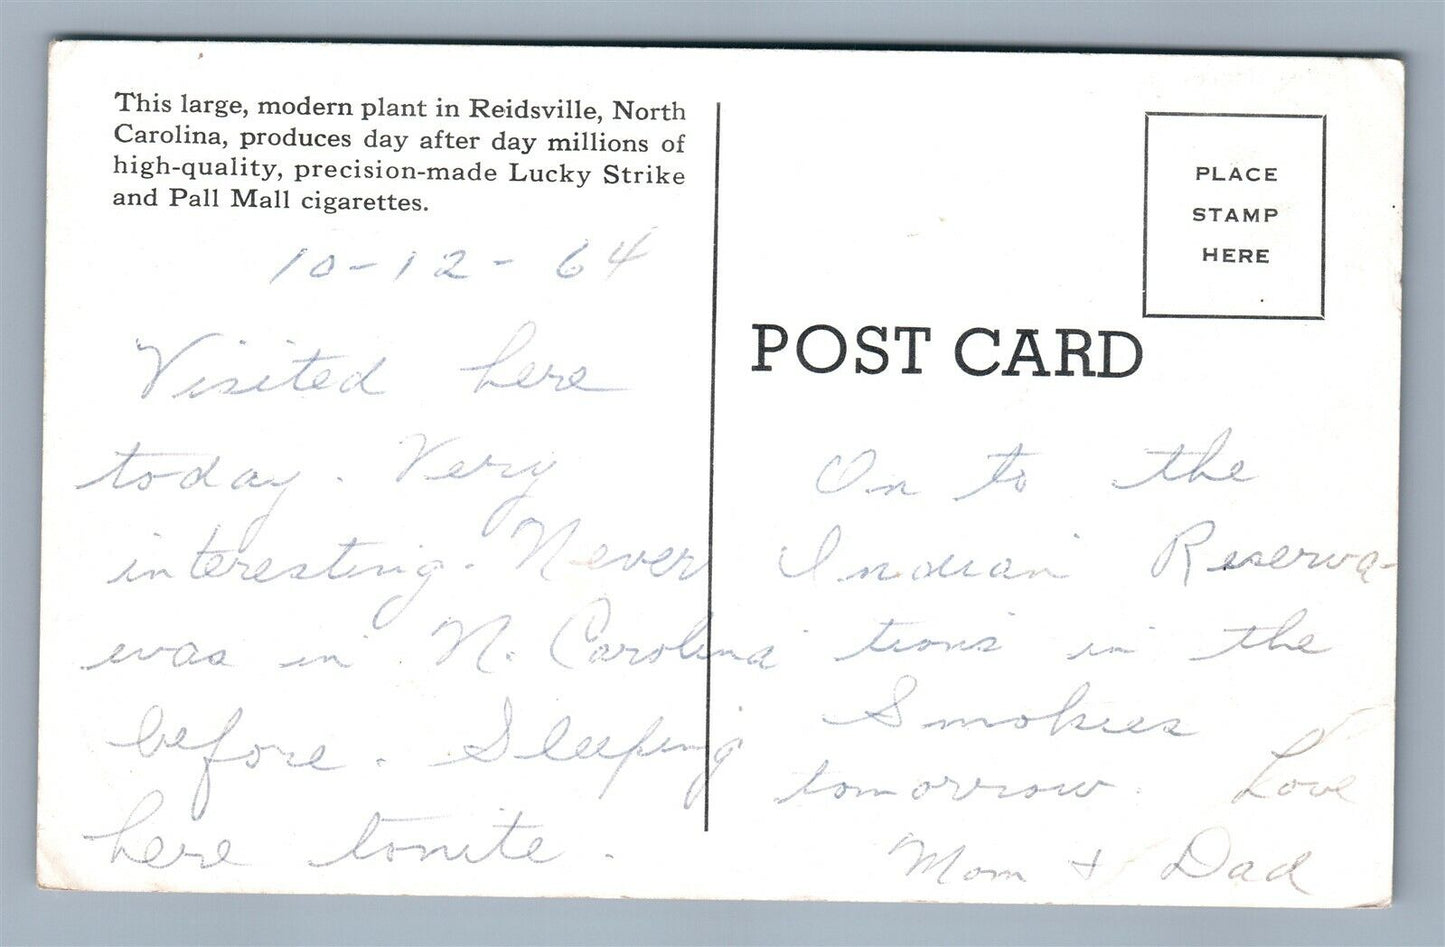 This large, modern plant in Reidsville, North
Carolina, produces day after day millions of
high-quality, precision-made Lucky Strike
and Pall Mall cigarettes.
10-12-64
Visited here
today. Very
interesting. Never
was in N. Carolina
before. Sleeping
here tonite.
PLACE
STAMP
HERE
POST CARD
On to the
Indian Reserva-
tions in the
Smokies
tomorrow. Love
Mom + Dad